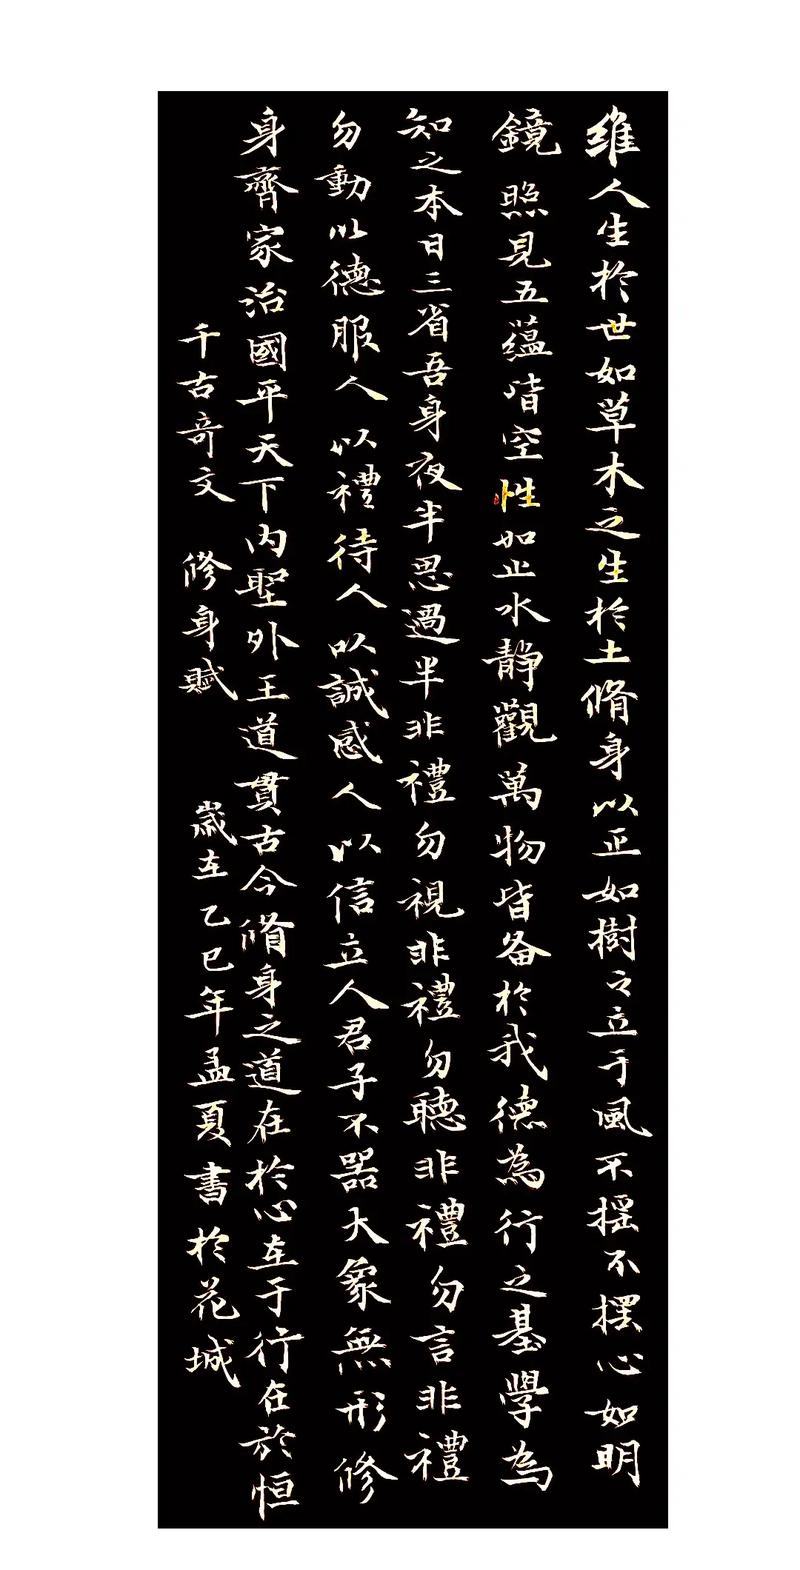 维人生於世如草木之生於土脩身以正如樹之立于風不摇不擺心如明
鏡照見五蕴皆空性如止水靜觀萬物皆备於我德為行之基學為
知之本日三省吾身夜半思過半非禮勿視非禮勿聽非禮勿言非禮
勿動以德服人以禮待人以誠感人以信立人君子不器大象無形修
身齊家治國平天下内聖外王道貫古今脩身之道在於心在于行在於恒
千古奇文 修身賦 歲在乙巳年孟夏書於花城